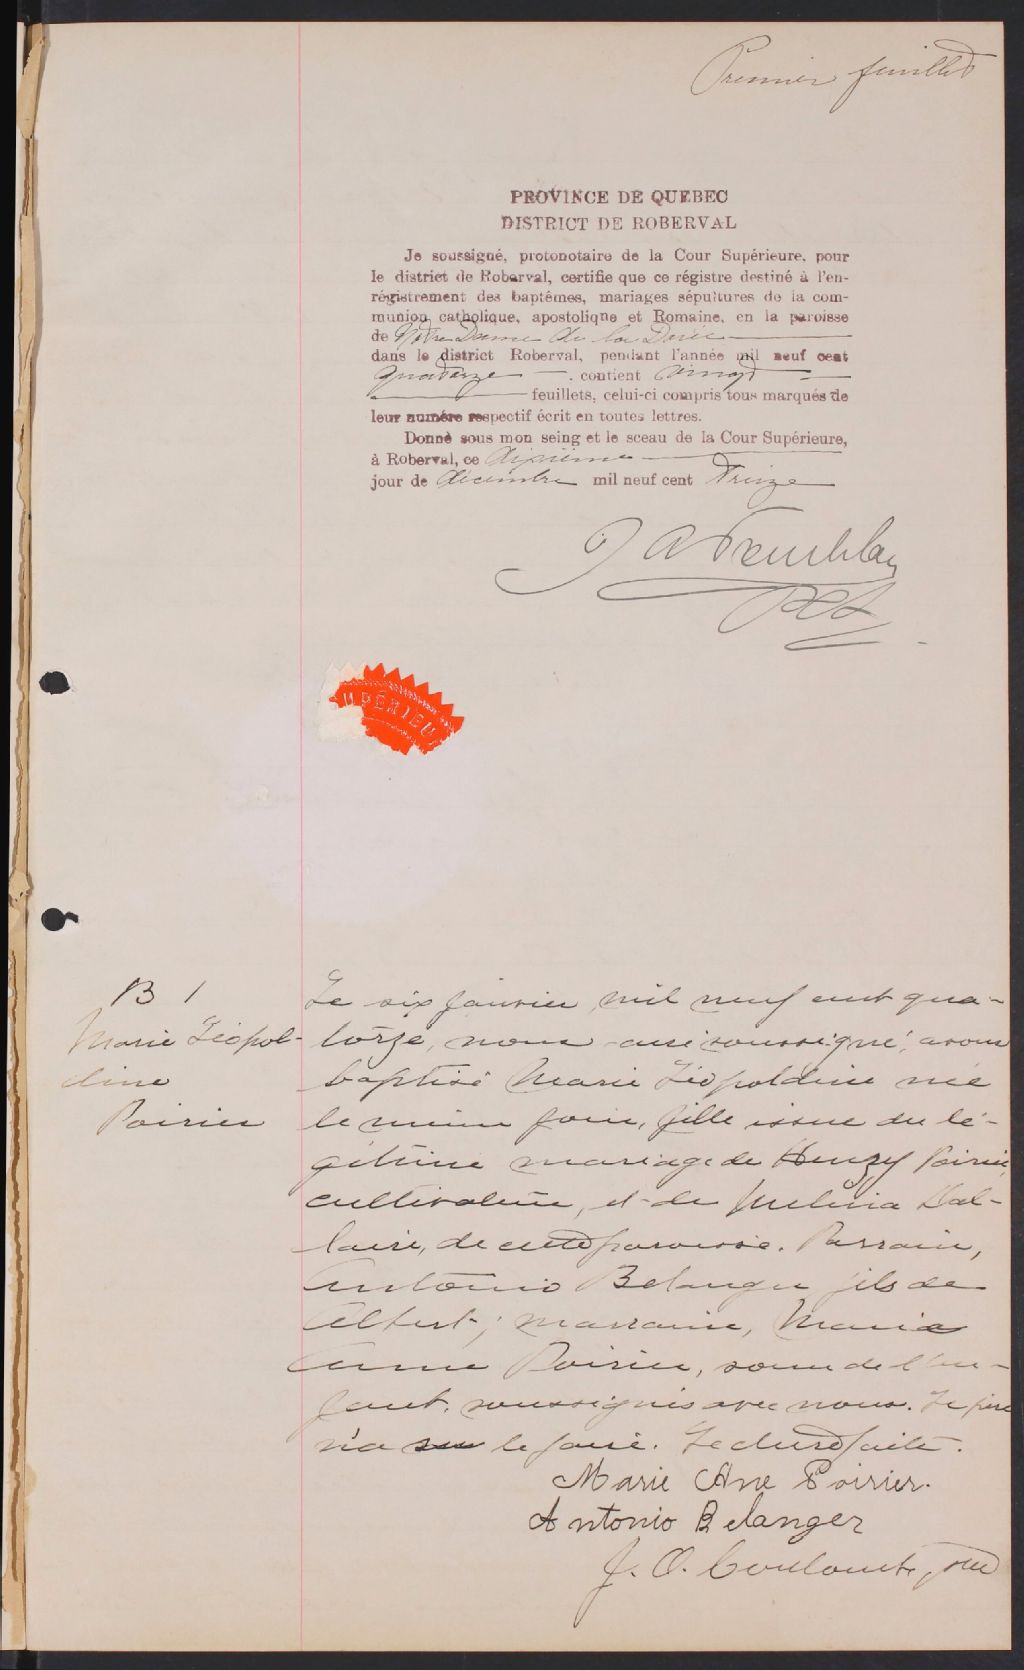 Premier feuillet
PROVINCE DE QUEBEC
DISTRICT DE ROBERVAL
Je soussigné, protonotaire de la Cour Supérieure, pour
le district de Roberval, certifie que ce régistre destiné à l'en-
régistrement des baptêmes, mariages sépultures de la com-
munion catholique, apostolique et Romaine, en la paroisse
de Notre Dame de la Doré
dans le district Roberval, pendant l'année mil neuf cent
quatorze contient vingt
feuillets, celui-ci compris tous marqués de
leur numéro respectif écrit en toutes lettres.
Donné sous mon seing et le sceau de la Cour Supérieure,
à Roberval, ce dixième
jour de décembre mil neuf cent treize
J A Tremblay
PCS
UPÉRIEU
B 1
Marie Léopol-
dine
Poirier
Le six janvier mil neuf cent qua-
torze, nous curé soussigné, avons
baptisé Marie Léopoldine née
le même jour, fille issue du lé-
gitime mariage de Henry Poirier,
cultivateur, et de Mélina Dal-
laire, de cette paroisse. Parrain,
Antonio Belanger fils de
Albert; marraine, Marie
Anne Poirier, soeur de l'en-
fant, soussignés avec nous. Le père
n'a su le faire. Lecture faite.
Marie Ane Poirier.
Antonio Belanger
J. O. Coulombe, ptre